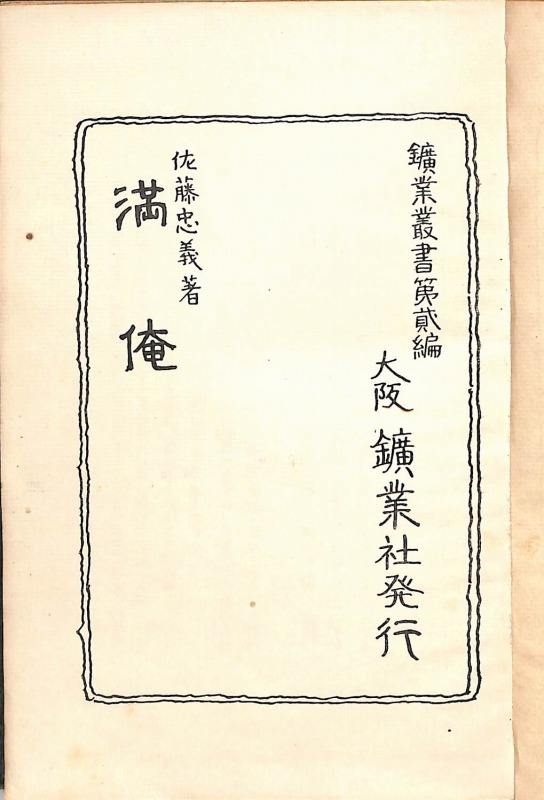 鑛業叢書第貳編
大阪鑛業社発行
佐藤忠義著
満俺